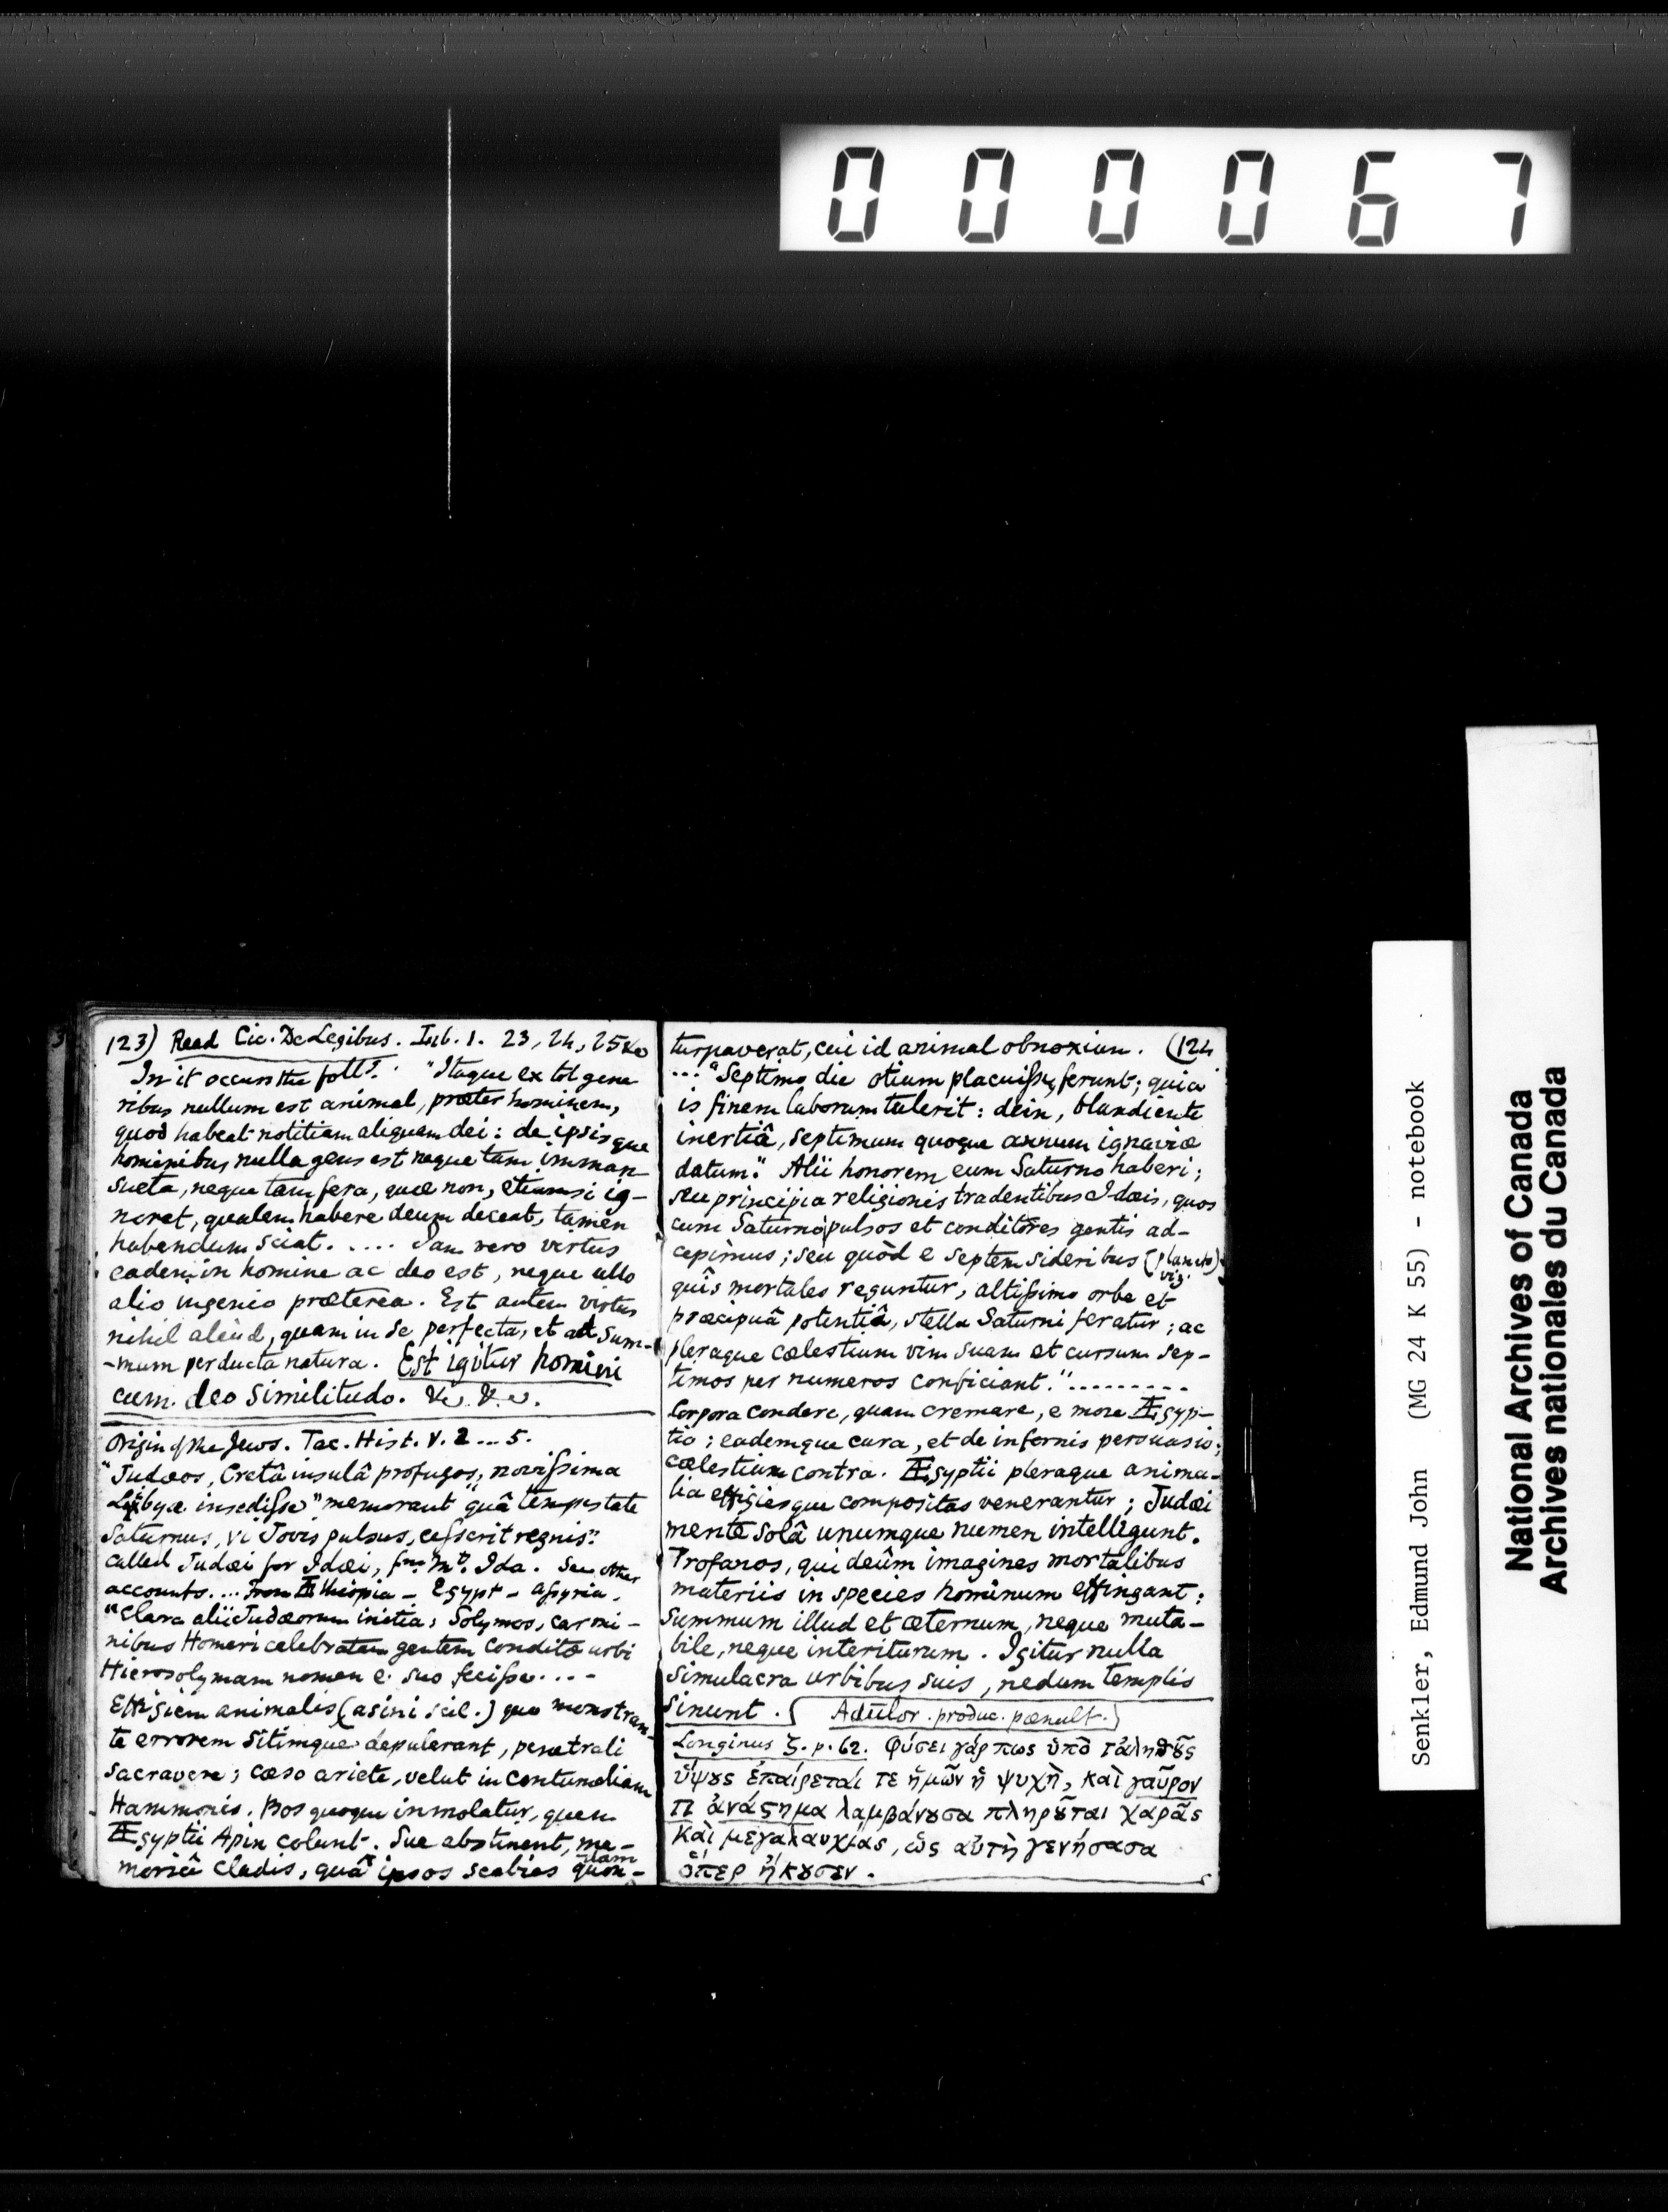 000067
123) Read Cic. De Legibus. Lib. 1. 23, 24, 25 &c
In it occurs the follg. "Itaque ex tot gene
ribus nullum est animal, præter hominem,
quod habeat notitiam aliquam dei: de ipsisque
hominibus nulla gens est neque tam imman
sueta, neque tam fera, quæ non, etiamsi ig-
noret, qualem habere deum deceat, tamen
habendum sciat. .... Jam vero virtus
eadem in homine ac deo est, neque ullo
alio ingenio præterea. Est autem virtus
nihil aliud, quam in se perfecta, et ad sum-
-mum perducta natura. Est igitur homini
cum deo similitudo. &c. &c.
Origin of the Jews. Tac. Hist. V. 2 ... 5.
"Judæos, Cretâ insulâ profugos, novissima
Libyæ insedisse" memorant "quâ tempestate
Saturnus, vi Jovis pulsus, cesserit regnis."
called Judæi for Idæi, fm Mt. Ida. See other
accounts. ... From Æthiopia – Egypt – Assyria.
"Clara alii Judæorum initia; Solymos, carmi-
nibus Homeri celebratam gentem conditæ urbi
Hierosolymam nomen e suo fecisse. ...
Effigiem animalis (asini scil.) quo monstran-
te errorem sitimque depulerant, penetrali
sacravere; cæso ariete, velut in contumeliam
Hammonis. Bos quoque inmolatur, quem
Ægyptii Apin colunt. Sue abstinent, me-
moriâ cladis, quâ ipsos scabies quon-
dam
turpaverat, cui id animal obnoxium. (124
... "Septimo die otium placuisse, ferunt; quia
is finem laborum tulerit: dein, blandiente
inertiâ, septimum quoque annum ignaviæ
datum." Alii honorem eum Saturno haberi;
seu principia religionis tradentibus Idæis, quos
cum Saturno pulsos et conditores gentis ad-
cepimus; seu quòd e septem sideribus (planets)
viz.
quîs mortales reguntur, altissimo orbe et
præcipuâ potentiâ, stella Saturni feratur; ac
pleraque cœlestium vim suam et cursum sep-
timos per numeros conficiant." .........
Corpora condere, quam cremare, e more Ægyp-
tio; eademque cura, et de infernis persuasio;
cœlestium contra. Ægyptii pleraque anima-
lia effigiesque compositas venerantur; Judæi
mente solâ unumque numen intelligunt.
Profanos, qui deûm imagines mortalibus
materiis in species hominum effingant;
Summum illud et æternum, neque muta-
bile, neque interiturum. Igitur nulla
simulacra urbibus suis, nedum templis
sinunt. { Adūlor. produc. pænult. }
Longinus ζ. p. 62. Φύσει γάρ πως ὑπὸ τἀληθȣ͂ς
ὕψȣς ἐπαίρεταί τε ἡμῶν ἡ ψυχὴ, καὶ γαῦρον
τι ἀνάςημα λαμβάνȣσα πληρȣ͂ται χαρᾶς
καὶ μεγαλαυχίας, ὡς αὐτὴ γενήσασα
ὅπερ ἤκȣσεν.
Senkler, Edmund John (MG 24 K 55) - notebook
National Archives of Canada
Archives nationales du Canada